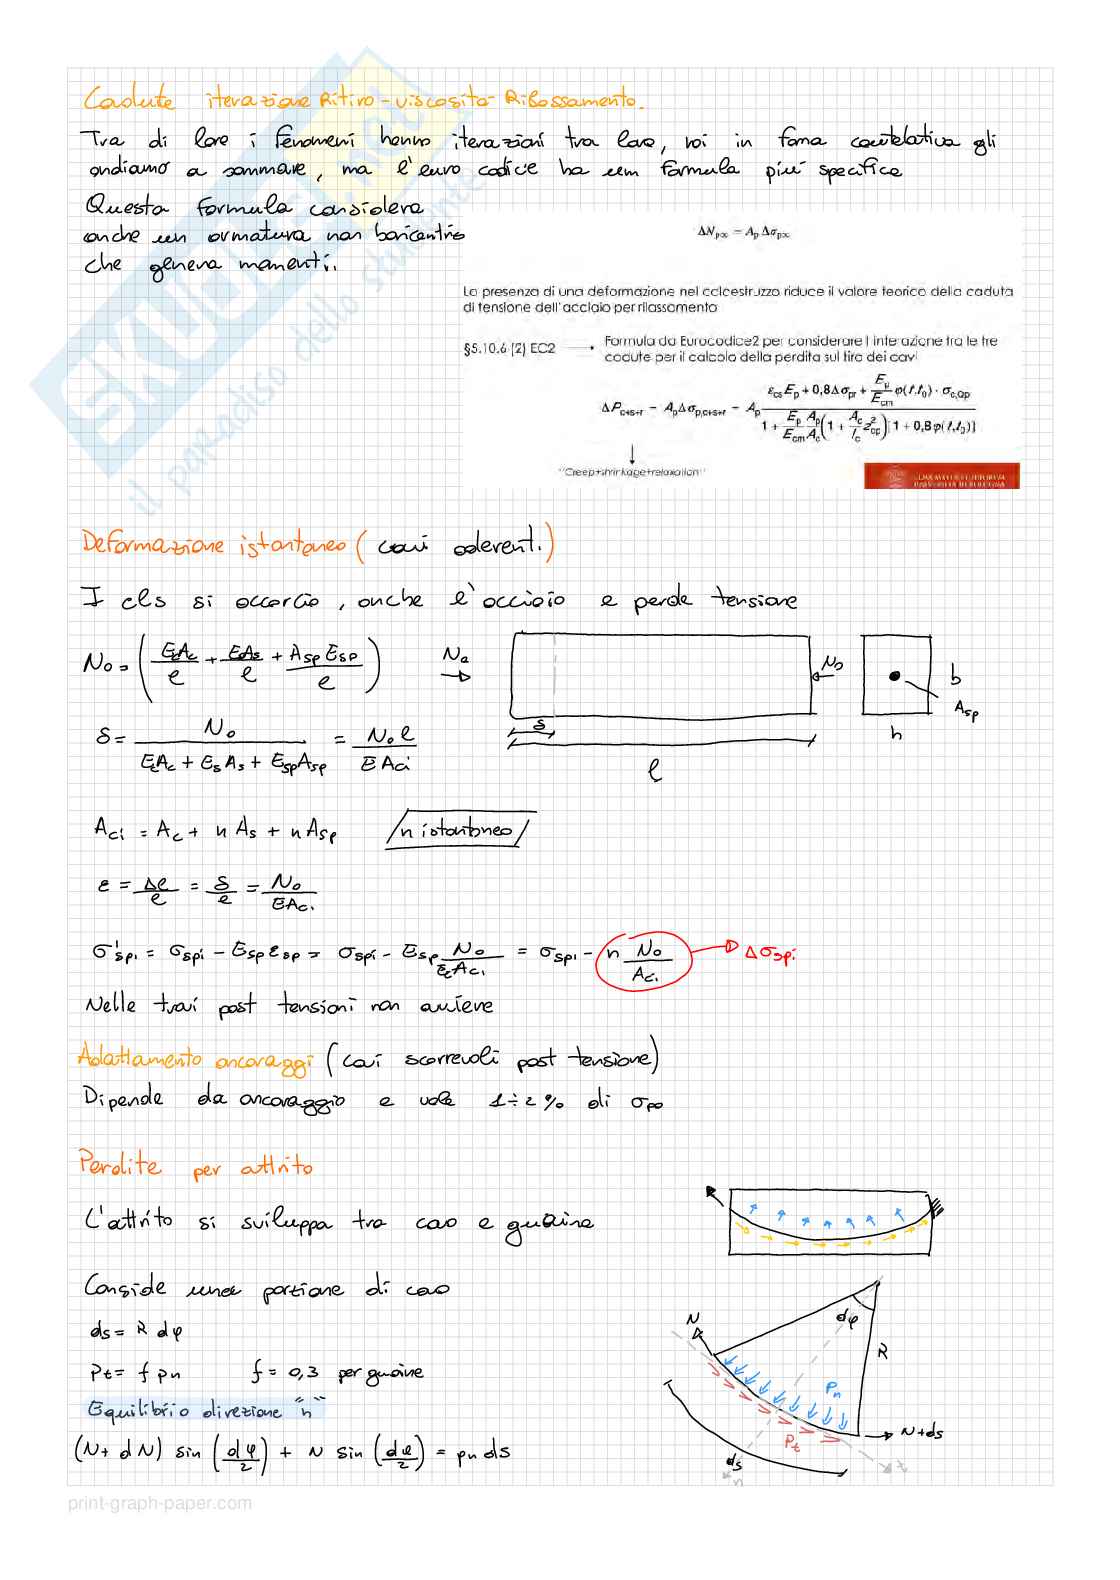 Cadute iterazione Ritiro - viscosità - Rilassamento.
Tra di loro i fenomeni hanno iterazioni tra loro, noi in foma cautelativa gli
andiamo a sommare, ma l'euro codice ha um formula più specifica
Questa formula considera
anche un armatura non baricentrica
che genera momenti.
ΔNp∞ = Ap Δσp∞
La presenza di una deformazione nel calcestruzzo riduce il valore teorico della caduta
di tensione dell'acciaio per rilassamento
§5.10.6 (2) EC2 → Formula da Eurocodice2 per considerare l'interazione tra le tre
cadute per il calcolo della perdita sul tiro dei cavi
ΔPc+s+r = Ap Δσp,c+s+r = Ap (εcs Ep + 0,8Δσpr + Ep/Ecm φ(t,t0) · σc,Qp) / (1 + Ep/Ecm Ap/Ac (1 + Ac/Ic z²cp) [1 + 0,8 φ(t,t0)])
"Creep+shrinkage+relaxation"
Deformazione istantanea (cavi aderenti)
I cls si accorcia, anche l'acciaio e perde tensione
No = (EcAc/l + EsAs/l + Asp Esp/l)
No
No
δ
l
b
Asp
h
δ = No / (EcAc + EsAs + EspAsp) = No l / E Aci
Aci = Ac + n As + n Asp
n istantaneo
ε = Δl/l = δ/l = No/EAci
σ'spi = σspi - Esp εsp = σspi - Esp No/EcAci = σspi - n No/Aci → Δσspi
Nelle travi post tensioni non avviene
Adattamento ancoraggi (cavi scorrevoli post tensione)
Dipende da ancoraggio e vale 1÷2% di σpo
Perdite per attrito
L'attrito si sviluppa tra cavo e guaina
Conside una porzione di cavo
ds = R dφ
Pt = f pn f = 0,3 per guaine
Equilibrio direzione "n"
(N+ dN) sin (dφ/2) + N sin (dφ/2) = pn ds
N
dφ
R
Pn
Pt
N+ds
ds
n
t
print-graph-paper.com
SKUOLA.net
il paradiso dello studente